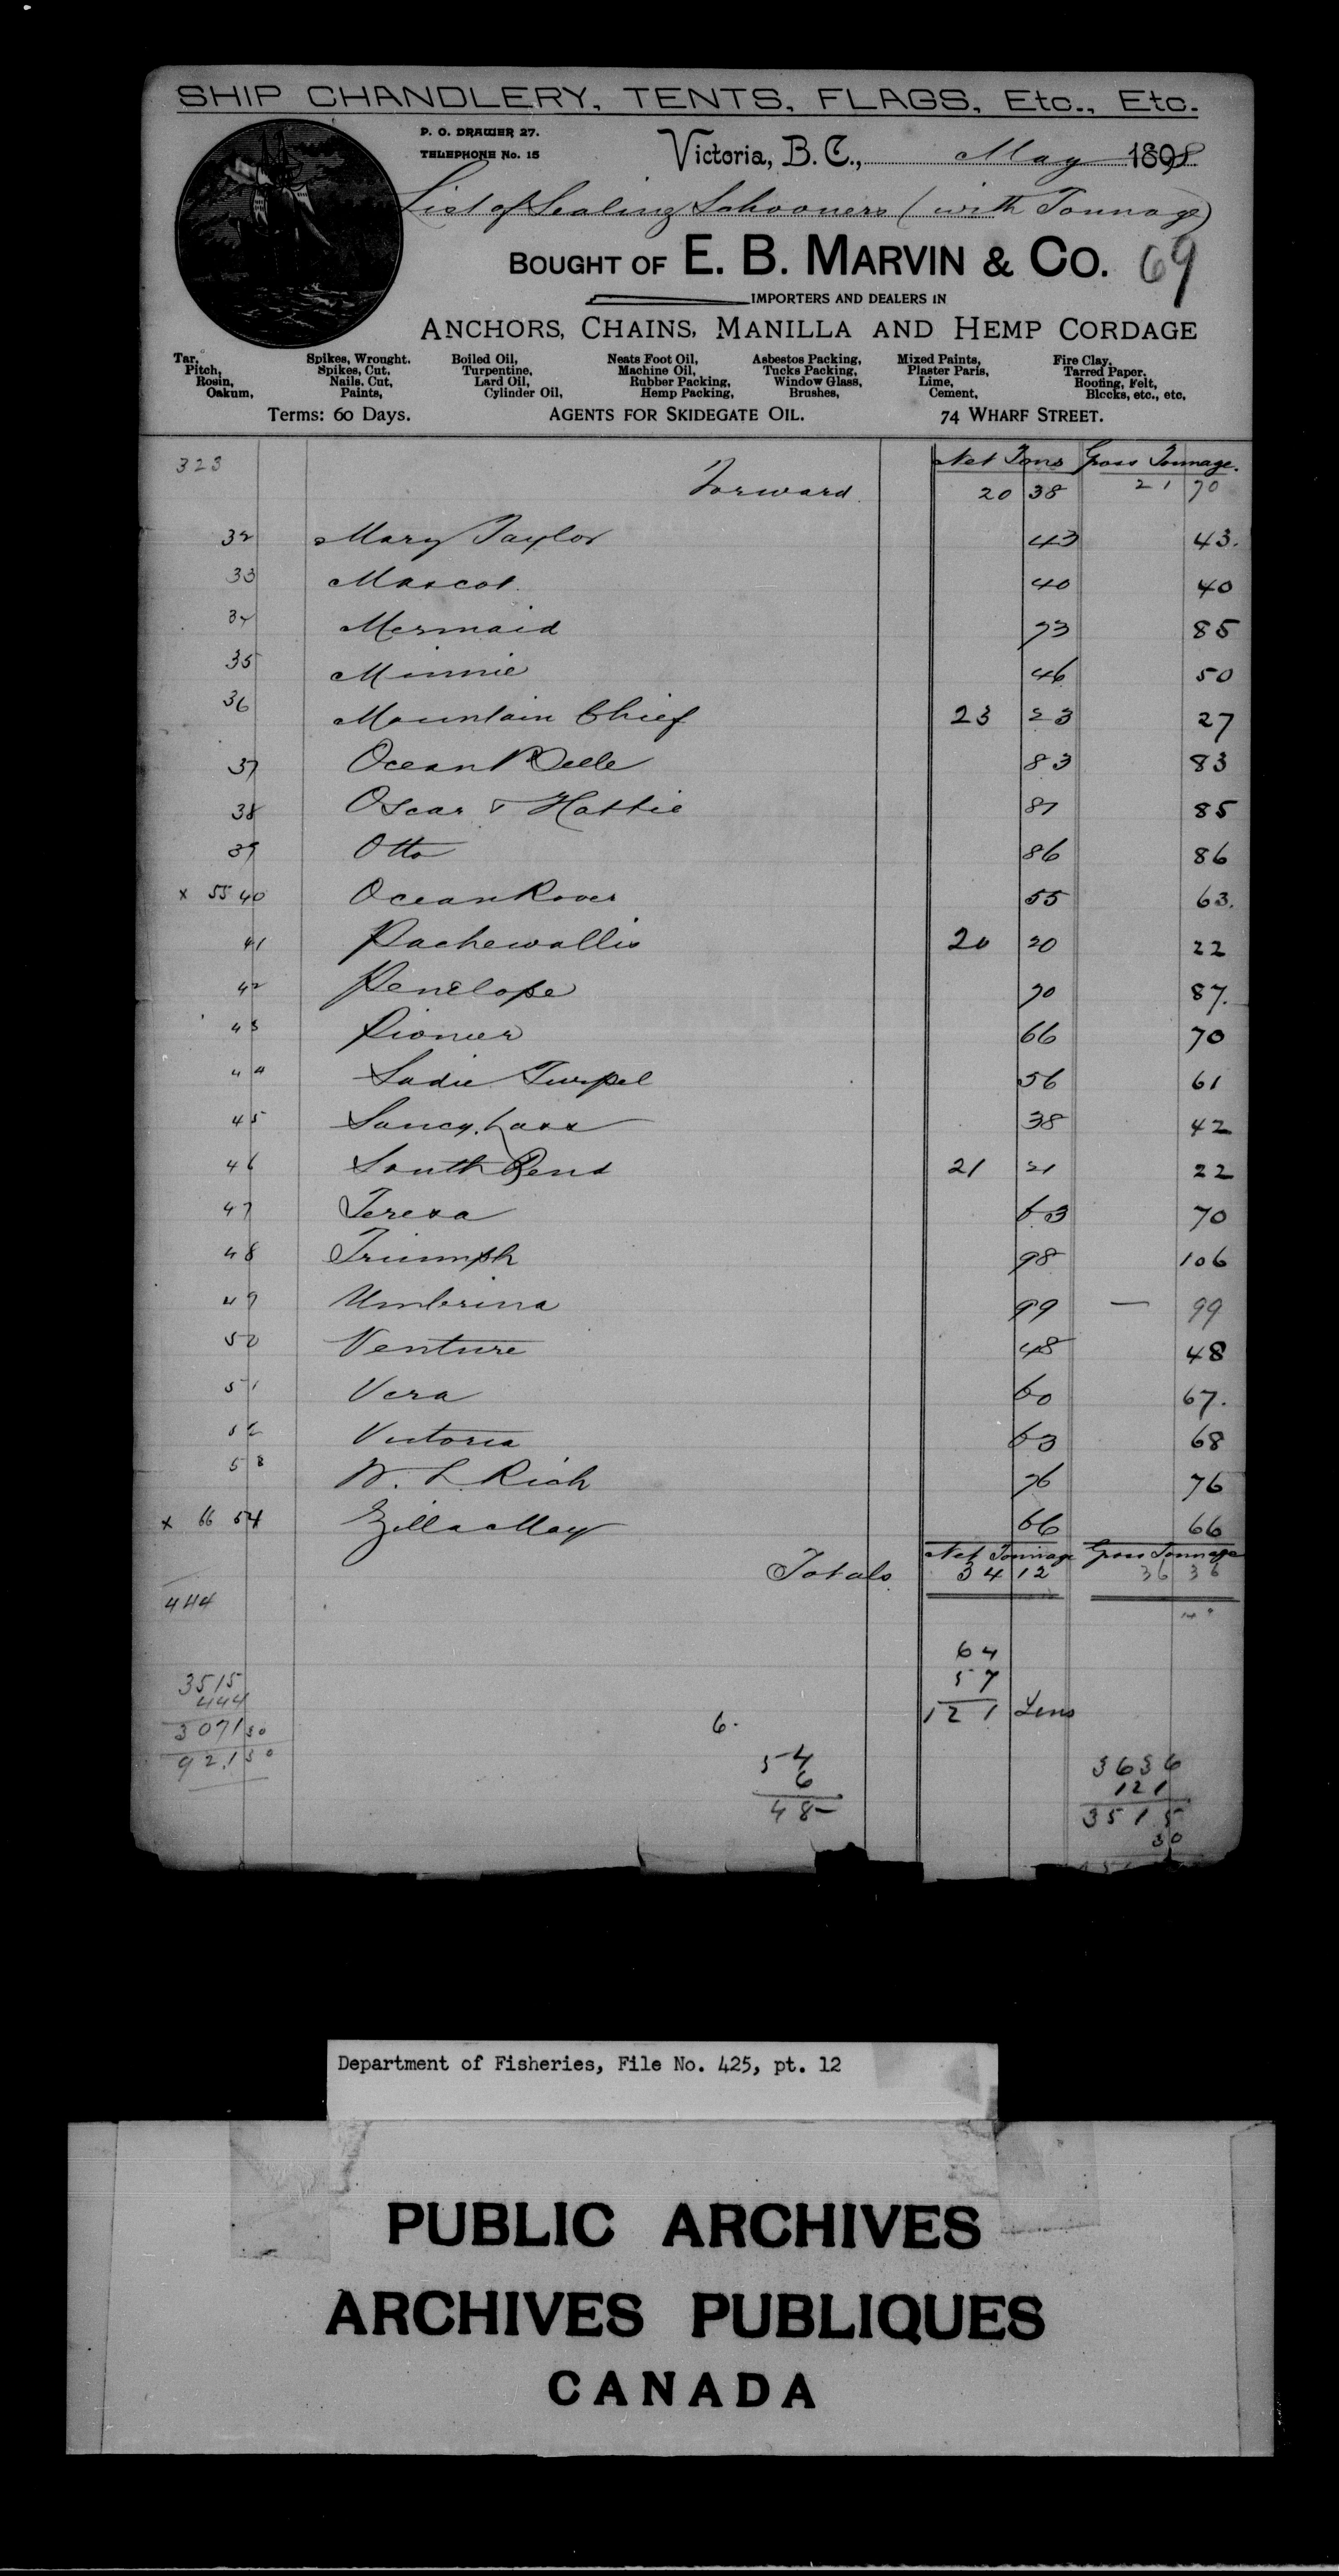 SHIP CHANDLERY, TENTS, FLAGS, Etc., Etc.
P. O. DRAWER 27.
TELEPHONE No. 15
Victoria, B. C., May 1898
List of Sealing Schooners (with Tonnage)
BOUGHT OF E. B. MARVIN & CO. 69
IMPORTERS AND DEALERS IN
ANCHORS, CHAINS, MANILLA AND HEMP CORDAGE
Tar, Spikes, Wrought. Boiled Oil, Neats Foot Oil, Asbestos Packing, Mixed Paints, Fire Clay,
Pitch, Spikes, Cut, Turpentine, Machine Oil, Tucks Packing, Plaster Paris, Tarred Paper.
Rosin, Nails, Cut, Lard Oil, Rubber Packing, Window Glass, Lime, Roofing, Felt,
Oakum, Paints, Cylinder Oil, Hemp Packing, Brushes, Cement, Blocks, etc., etc.
Terms: 60 Days. AGENTS FOR SKIDEGATE OIL. 74 WHARF STREET.
323 Net Tons Gross Tonnage.
Forward. 20 38 21 70
32 Mary Taylor 43 43.
33 Mascot. 40 40
34 Mermaid 73 85
35 Minnie 46 50
36 Mountain Chief 23 23 27
37 Ocean Belle 83 83
38 Oscar & Hattie 81 85
39 Otto 86 86
x 55 40 Ocean Rover 55 63.
41 Pachewallis 20 20 22
42 Penelope 70 87.
43 Pioneer 66 70
44 Sadie Turpel 56 61
45 Saucy Lass 38 42
46 South Bend 21 21 22
47 Teresa 63 70
48 Triumph 98 106
49 Umbrina 99 — 99
50 Venture 48 48
51 Vera 60 67.
52 Victoria 63 68
53 W. L. Rich 76 76
x 66 54 Zilla May 66 66
Net Tonnage Gross Tonnage
Totals 34 12 36 36
444
64
57
121 Less
3515
444
3071 30
921 30
6.
54
6
48-
3636
121
3515
30
Department of Fisheries, File No. 425, pt. 12
PUBLIC ARCHIVES
ARCHIVES PUBLIQUES
CANADA